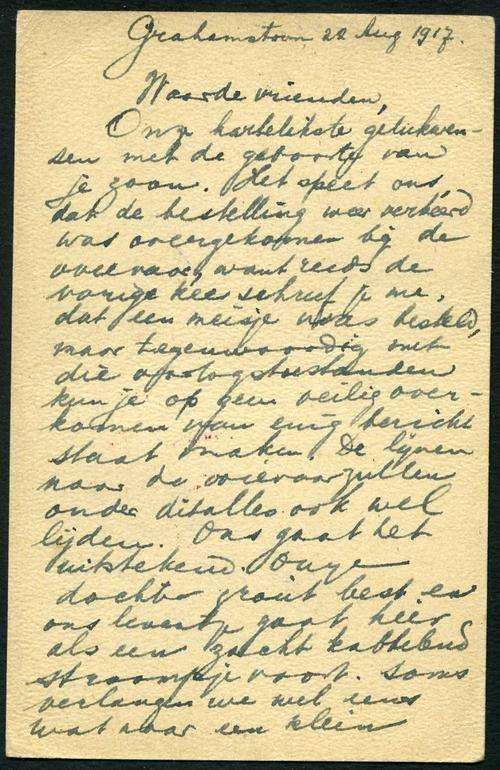 Grahamstown 22 Aug 1917.
Waarde vrienden,
Onze hartelikste gelukwen-
sen met de geboorte van
je zoon. Het speet ons,
dat de bestelling weer verkeerd
was overgekomen bij de
ooievaar, want reeds de
vorige keer schreef je me,
dat een meisje was besteld,
maar tegenwoordig met
die oorlogstoestanden
kun je op geen veilig over-
komen van enig bericht
staat maken. De lijnen
naar de ooievaar zullen
onder dit alles ook wel
lijden. Ons gaat het
uitstekend. Onze
dochter groeit best en
ons leventje gaat hier
als een zacht kabbelend
stroompje voort. Soms
verlangen we wel eens
wat naar een klein